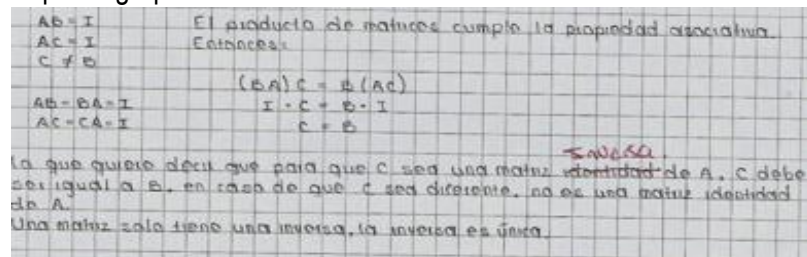 AB = I
El producto de matrices cumple la propiedad asociativa.
AC = I
Entonces:
C ≠ B
(BA)C = B(AC)
AB = BA = I
I · C = B · I
AC = CA = I
C = B
INVERSA
lo que quiere decir que para que C sea una matriz identidad de A, C debe
ser igual a B, en caso de que C sea diferente, no es una matriz identidad
de A.
Una matriz solo tiene una inversa, la inversa es única.